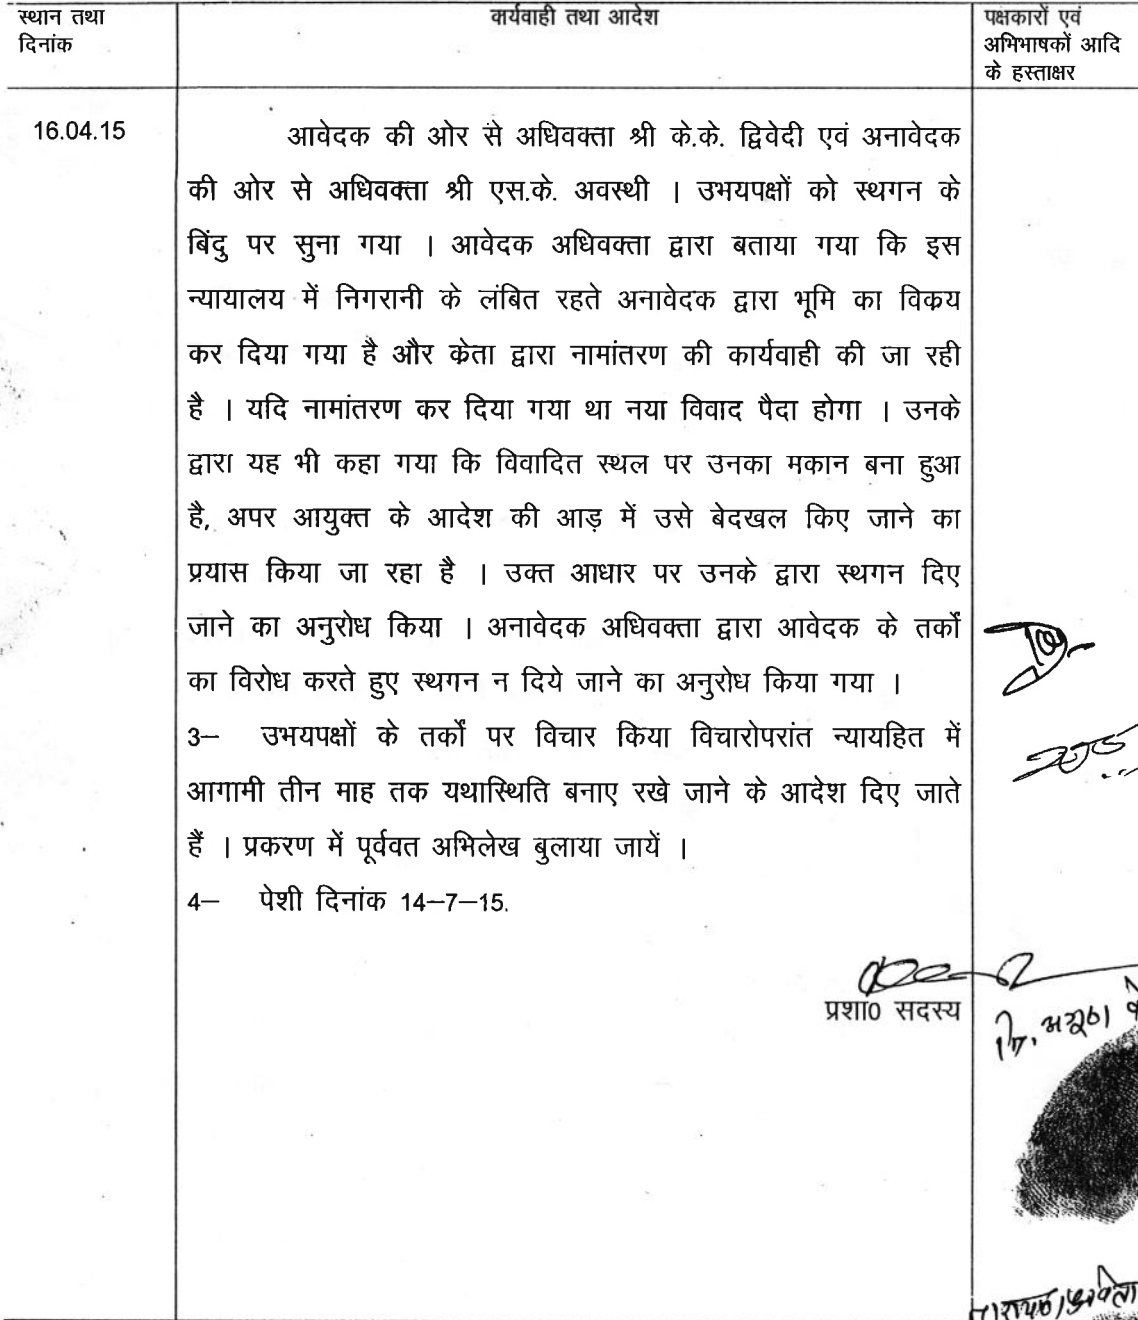 स्थान तथा
दिनांक
कार्यवाही तथा आदेश
पक्षकारों एवं
अभिभाषकों आदि
के हस्ताक्षर
16.04.15
आवेदक की ओर से अधिवक्ता श्री के.के. द्विवेदी एवं अनावेदक
की ओर से अधिवक्ता श्री एस.के. अवस्थी । उभयपक्षों को स्थगन के
बिंदु पर सुना गया । आवेदक अधिवक्ता द्वारा बताया गया कि इस
न्यायालय में निगरानी के लंबित रहते अनावेदक द्वारा भूमि का विकय
कर दिया गया है और केता द्वारा नामांतरण की कार्यवाही की जा रही
है । यदि नामांतरण कर दिया गया था नया विवाद पैदा होगा । उनके
द्वारा यह भी कहा गया कि विवादित स्थल पर उनका मकान बना हुआ
है, अपर आयुक्त के आदेश की आड़ में उसे बेदखल किए जाने का
प्रयास किया जा रहा है । उक्त आधार पर उनके द्वारा स्थगन दिए
जाने का अनुरोध किया । अनावेदक अधिवक्ता द्वारा आवेदक के तर्कों
का विरोध करते हुए स्थगन न दिये जाने का अनुरोध किया गया ।
3– उभयपक्षों के तर्कों पर विचार किया विचारोपरांत न्यायहित में
आगामी तीन माह तक यथास्थिति बनाए रखे जाने के आदेश दिए जाते
हैं । प्रकरण में पूर्ववत अभिलेख बुलाया जायें ।
4– पेशी दिनांक 14–7–15.
प्रशा0 सदस्य
नि. अगूठा